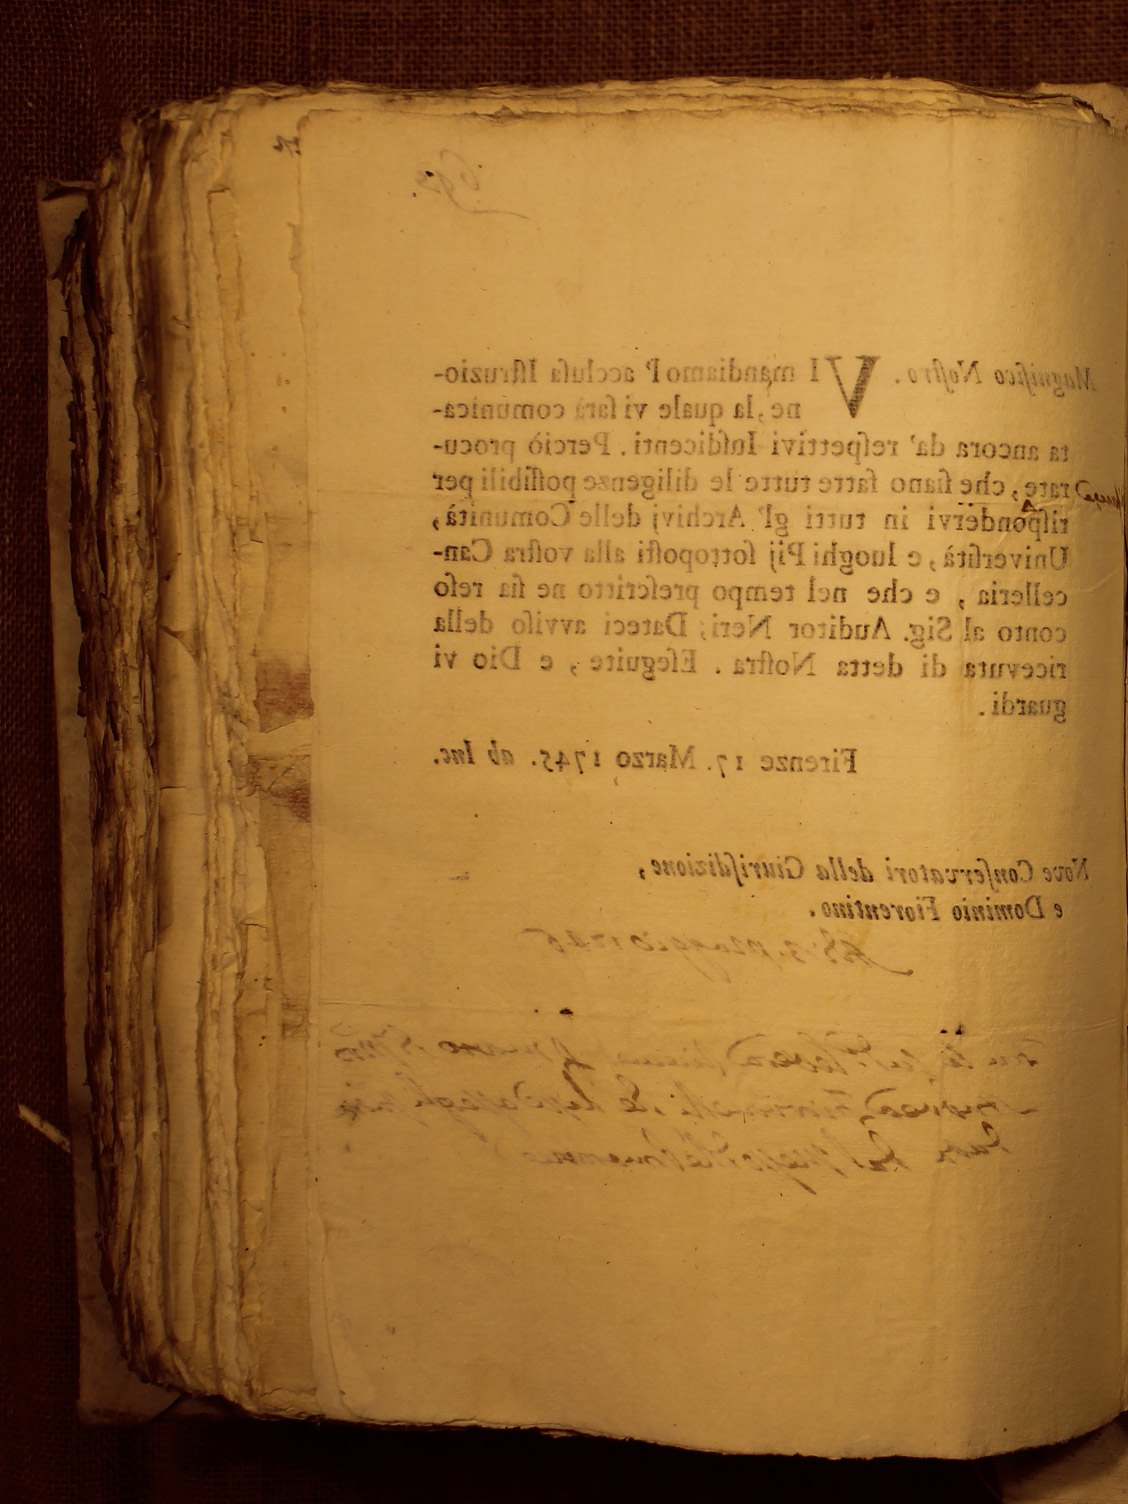 692
Magnifico Nostro. VI mandiamo l' acclusa Istruzio-
ne, la quale vi sarà comunica-
ta ancora da' respettivi Iusdicenti. Perciò procu-
rate, che siano fatte tutte le diligenze possibili per
rispondervi in tutti gl' Archivj delle Comunità,
Università, e luoghi Pij sottoposti alla vostra Can-
celleria, e che nel tempo prescritto ne sia reso
conto al Sig. Auditor Neri; Dateci avviso della
ricevuta di detta Nostra. Eseguite, e Dio vi
guardi.
Firenze 17. Marzo 1745. ab Inc.
Nove Conservatori della Giurisdizione,
e Dominio Fiorentino.
Adì 3. maggio 1746